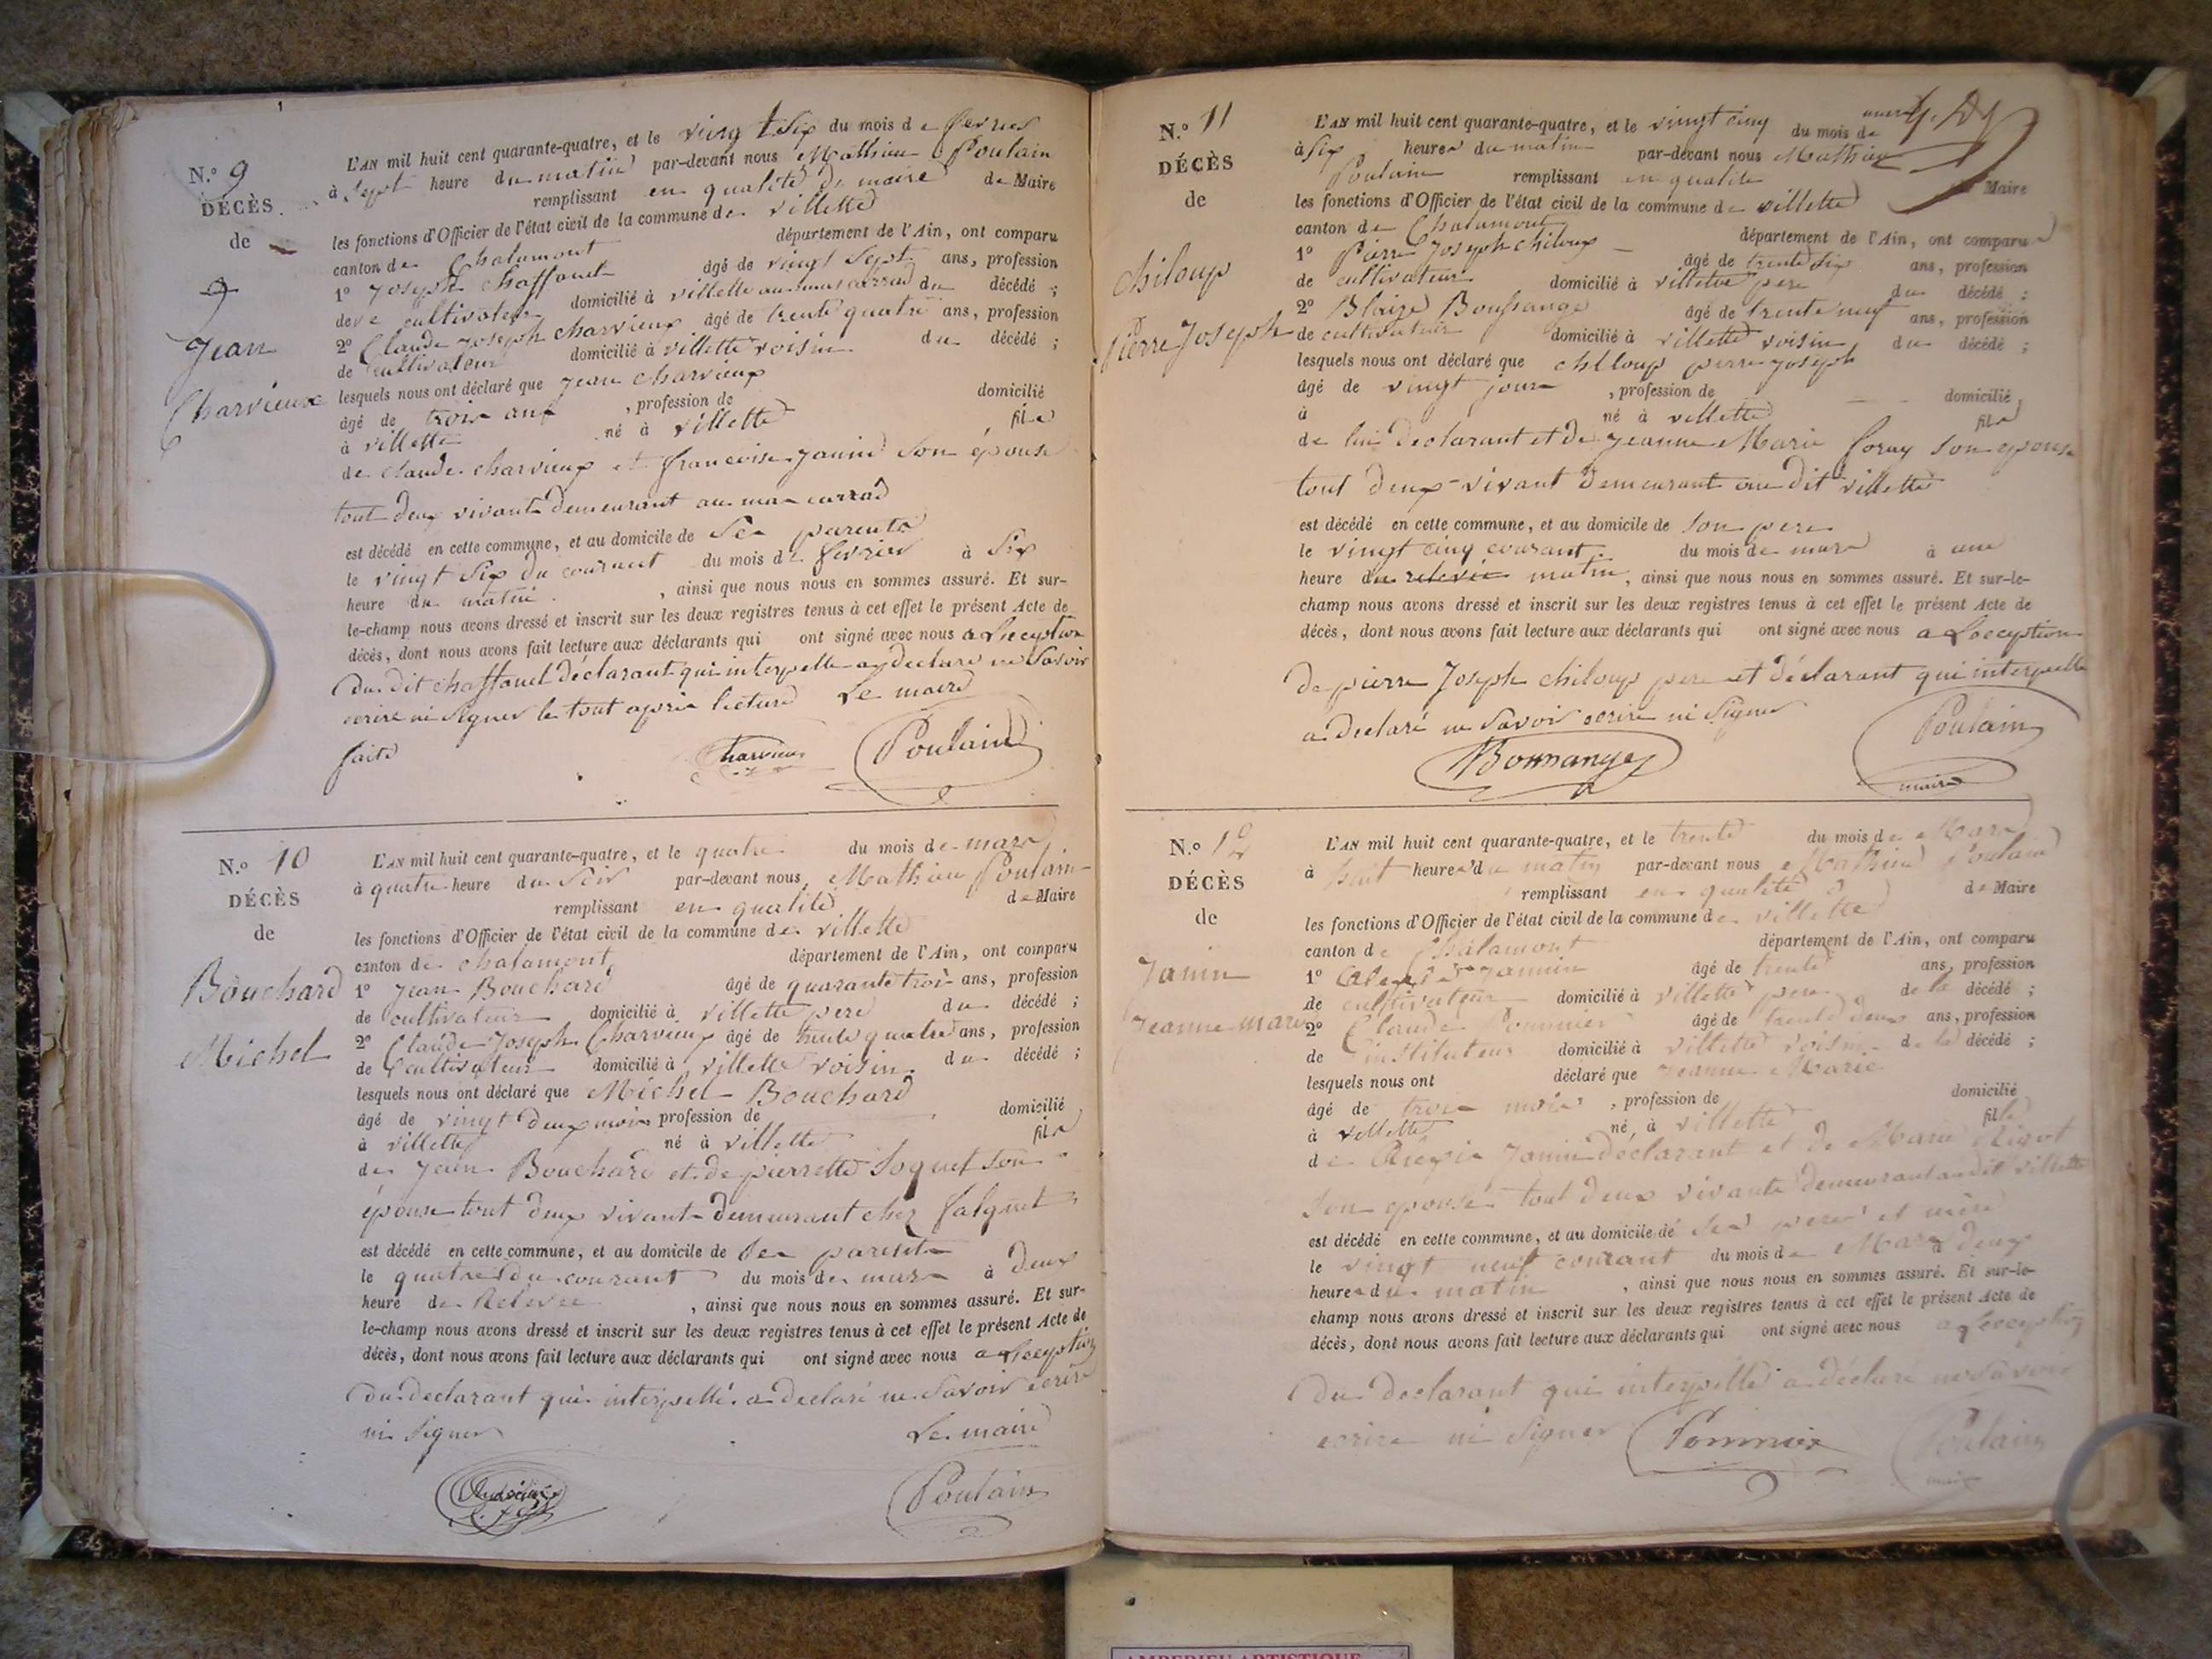 N.° 9
DÉCÈS
de
Jean
Charvieux
L'AN mil huit cent quarante-quatre, et le vingt six du mois de fevrier
à sept heure du matin par-devant nous Mathieu Poulain
remplissant en qualité de maire de Maire
les fonctions d'Officier de l'état civil de la commune de villette
canton de Chalamont département de l'Ain, ont comparu
1° Joseph Chaffanel âgé de vingt sept ans, profession
de cultivateur domicilié à villette au mas carrad du décédé ;
2° Claude Joseph charvieux âgé de trente quatre ans, profession
de cultivateur domicilié à villette voisin du décédé ;
lesquels nous ont déclaré que jean charvieux
âgé de trois ans , profession de domicilié
à villette né à villette fils
de claude charvieux et francoise janin son épouse
tout deux vivants demeurant au mas carrad
est décédé en cette commune, et au domicile de ses parents
le vingt six du courant du mois de fevrier à six
heure du matin , ainsi que nous nous en sommes assuré. Et sur-
le-champ nous avons dressé et inscrit sur les deux registres tenus à cet effet le présent Acte de
décès, dont nous avons fait lecture aux déclarants qui ont signé avec nous a Leception
du dit chaffanel déclarant qui interpellé a declaré ne savoir
ecrire ni signer le tout après lecture Le maire
faite Charvieux Poulain
N.° 10
DÉCÈS
de
Bouchard
Michel
L'AN mil huit cent quarante-quatre, et le quatre du mois de mars
à quatre heure du soir par-devant nous Mathieu Poulain
remplissant en qualité de Maire
les fonctions d'Officier de l'état civil de la commune de villette
canton de chalamont département de l'Ain, ont comparu
1° Jean Bouchard âgé de quarante trois ans, profession
de cultivateur domicilié à villette pere du décédé ;
2° Claude Joseph Charvieux âgé de trente quatre ans, profession
de Cultivateur domicilié à villette voisin du décédé ;
lesquels nous ont déclaré que Michel Bouchard
âgé de vingt deux mois profession de domicilié
à villette né à villette fils
de Jean Bouchard et de pierrette Soquet son
épouse tout deux vivant demeurant chez falquet
est décédé en cette commune, et au domicile de ses parents
le quatre du courant du mois de mars à deux
heure de Relevée , ainsi que nous nous en sommes assuré. Et sur-
le-champ nous avons dressé et inscrit sur les deux registres tenus à cet effet le présent Acte de
décès, dont nous avons fait lecture aux déclarants qui ont signé avec nous a Leception
du declarant qui interpellé a declaré ne savoir ecrire
ni signer Le maire
Poulain
N.° 11
DÉCÈS
de
Chiloup
Pierre Joseph
L'AN mil huit cent quarante-quatre, et le vingt cinq du mois de mars
à six heures du matin par-devant nous Mathieu
Poulain remplissant en qualite Maire
les fonctions d'Officier de l'état civil de la commune de villette
canton de Chalamont département de l'Ain, ont comparu
1° Pierre Joseph chiloup âgé de trente six ans, profession
de cultivateur domicilié à villette pere du décédé ;
2° Blaize Boussange âgé de trente neuf ans, profession
de cultivateur domicilié à villette voisin du décédé ;
lesquels nous ont déclaré que chiloup pierre joseph
âgé de vingt jours , profession de domicilié
à né à villette fils
de lui declarant et de jeanne Marie foray son epouse
tout deux vivant demeurant au dit villette
est décédé en cette commune, et au domicile de son pere
le vingt cinq courant du mois de mars à une
heure du relevée matin , ainsi que nous nous en sommes assuré. Et sur-le-
champ nous avons dressé et inscrit sur les deux registres tenus à cet effet le présent Acte de
décès, dont nous avons fait lecture aux déclarants qui ont signé avec nous a Loeception
de pierre Joseph chiloup pere et déclarant qui interpellé
a declaré ne savoir ecrire ni signer Poulain
Bonnange maire
N.° 12
DÉCÈS
de
Janin
Jeanne marie
L'AN mil huit cent quarante-quatre, et le trente du mois de Mars
à huit heures du matin par-devant nous Mathieu Poulain
remplissant en qualité de Maire
les fonctions d'Officier de l'état civil de la commune de villette
canton de Chalamont département de l'Ain, ont comparu
1° Jannin âgé de trente ans, profession
de cultivateur domicilié à villette pere de la décédé ;
2° Claude Pommier âgé de trente deux ans, profession
de instituteur domicilié à villette voisin de la décédé ;
lesquels nous ont déclaré que Jeanne Marie
âgé de trois mois , profession de domicilié
à villette né à villette fille
de Janin déclarant et de Marie
son epouse tout deux vivants demeurant au dit villette
est décédé en cette commune, et au domicile de ses pere et mère
le vingt neuf courant du mois de Mars à deux
heures du matin , ainsi que nous nous en sommes assuré. Et sur-le-
champ nous avons dressé et inscrit sur les deux registres tenus à cet effet le présent Acte de
décès, dont nous avons fait lecture aux déclarants qui ont signé avec nous a Leception
du declarant qui interpellé a déclaré ne savoir
ecrire ni signer Pommier Poulain
maire
AMPERIEU ARTISTIQUE